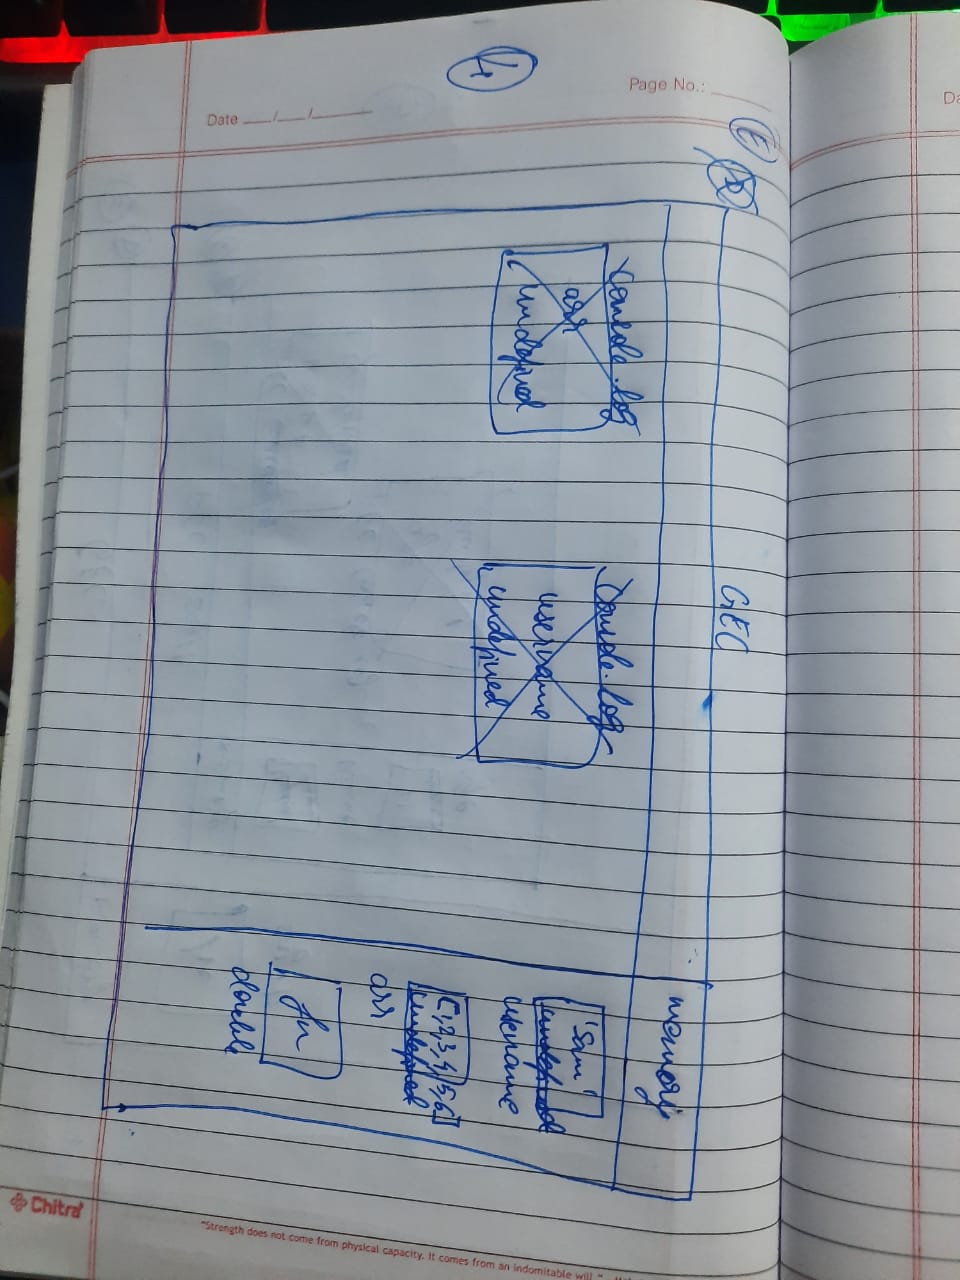 Page No.:
Date
GEC
memory
Console.log
arr
undefined
Console.log
username
undefined
'Sam'
undefined
username
[1,2,3,4,5,6]
undefined
arr
fn
double
Chitra
"Strength does not come from physical capacity. It comes from an indomitable will."